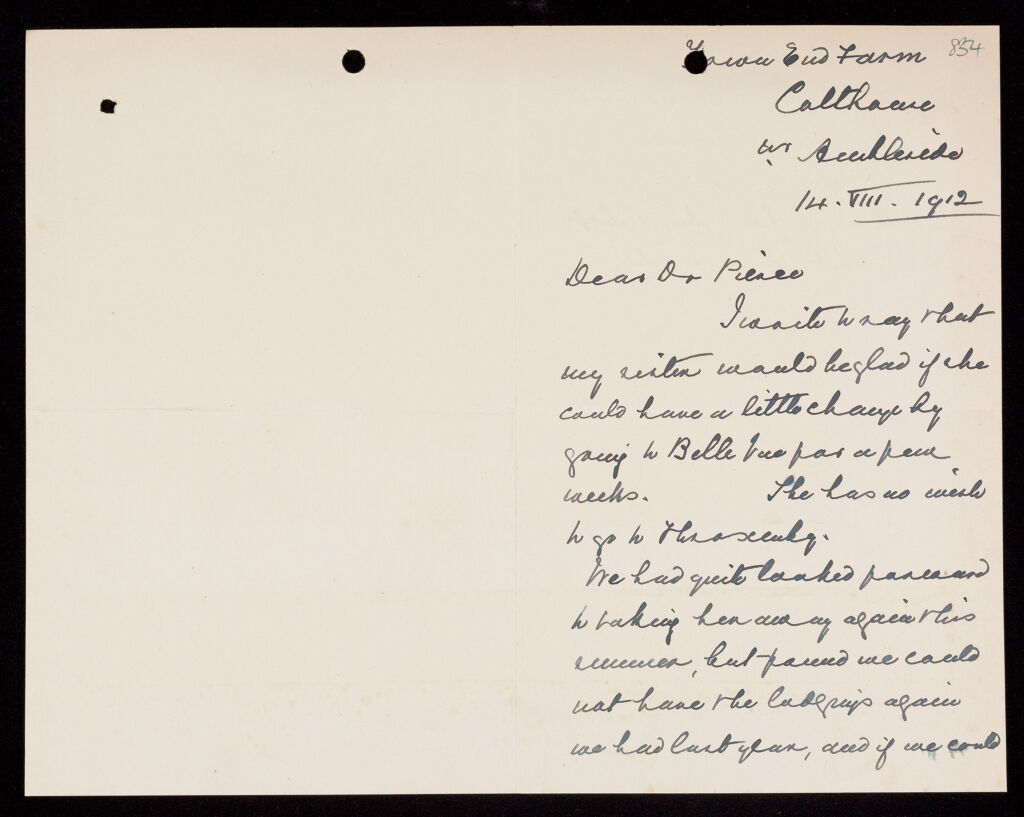 834
Town End Farm
Colthouse
nr Ambleside
14. VIII. 1912
Dear Dr Pierce
I write to say that
my sister would be glad if she
could have a little change by
going to Belle Vue for a few
weeks. She has no wish
to go to Throxenby.
We had quite looked forward
to taking her away again this
summer, but found we could
not have the lodgings again
we had last year, and if we could